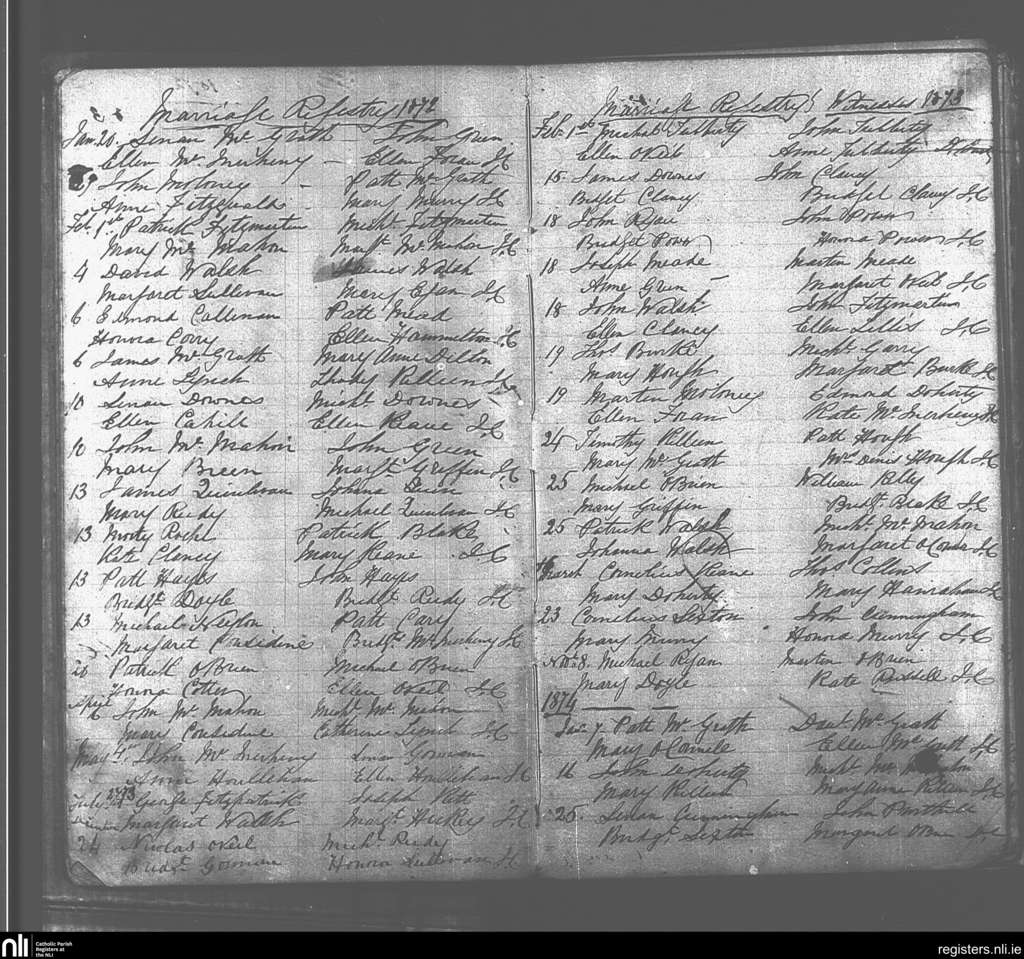 Marriage Registry 1872
Jan. 20. Senan Mc Grath John Green
Ellen Mc Inerheny - Ellen Foran J.C
John Moloney - Patt Mc Grath
Anne Fitzgerald Mary Murry J.C
Feb. 1st Patrick Fitzmartin Michl. Fitzmartin
Mary Mc Mahon Margt. Mc Mahon J.C
4 David Walsh James Walsh
Margaret Sullivan Mary Egan J.C
6 Edmond Callinan Patt Mead
Honora Corry Ellen Hammilton J.C
6 James Mc Grath Mary Anne Delton
Anne Lynch Thady Killeen J.C
10 Senan Downes Michl. Downes
Ellen Cahill Ellen Keane J.C
10 John Mc Mahon John Green
Mary Breen Margt. Griffin J.C
13 James Quinlivan Johana
Mary Reidy Michael Quinlivan J.C
13 Morty Roche Patrick Blake
Kate Clancy Mary Keane J.C
13 Patt Hayes John Hayes
Bridgt. Doyle Bridgt. Reidy J.C
13 Michael Patt Cary
Margaret Considine Bridgt. Mc Inerheny J.C
Patrick O'Brien Michael O'Brien
Honora Cotter Ellen O'Neil J.C
April 6 John Mc Mahon Michl. Mc Mahon
Mary Considine Catherine Lynch J.C
May 4th John Mc Inerheny Senan Gorman
Anne Houllehan Ellen Houllehan J.C
July 1873 George Fitzpatrick Joseph
Margaret Walsh Margt. Hickey J.C
24 Nicolas O'Neil Michl. Reidy
Bridgt. Gorman Honora Sullivan J.C
Marriage Registry Witnesses 1873
Feb. 1st Michael Tubberty John Tubberty
Ellen O'Neil Anne Tubberty
15 James Downes John Clancy
Bridget Clancy Bridget Clancy J.C
18 John Ryan John Power
Bridget Power Honora Power J.C
18 Joseph Meade Martin Meade
Anne Green - Margaret Neil J.C
18 John Walsh John Fitzmartin
Ellen Clancy Ellen Lillis J.C
19 Thos Burke Michl. Garry
Mary Hough Margaret Burke J.C
19 Martin Moloney Edmond Doherty
Ellen Foran Kate Mc Inerheny J.C
24 Timothy Killeen Patt Hough
Mary Mc Grath Mrs Denis Hough J.C
25 Michael O'Brien William Kelly
Mary Griffin Bridgt. Blake J.C
25 Patrick Walsh Michl. Mc Mahon
Johanna Walsh Margaret O'Connor J.C
March Cornelius Keane Thos Collins
Mary Doherty Mary Hanrahan J.C
23 Cornelius Sexton John Cunningham
Mary Murry Honora Murry J.C
Novr 8. Michael Ryan Martin O'Brien
Mary Doyle Kate Russell J.C
1874
Jan 7. Patt Mc Grath Danl Mc Grath
Mary O'Connell Ellen Mc Grath J.C
16 John Doherty Michl. Mc
Mary Killeen Mary Anne Killeen J.C
25. Senan Cunningham John
Bridgt. Sexton Margaret O'Brien J.C
nli Catholic Parish Registers at the NLI
registers.nli.ie